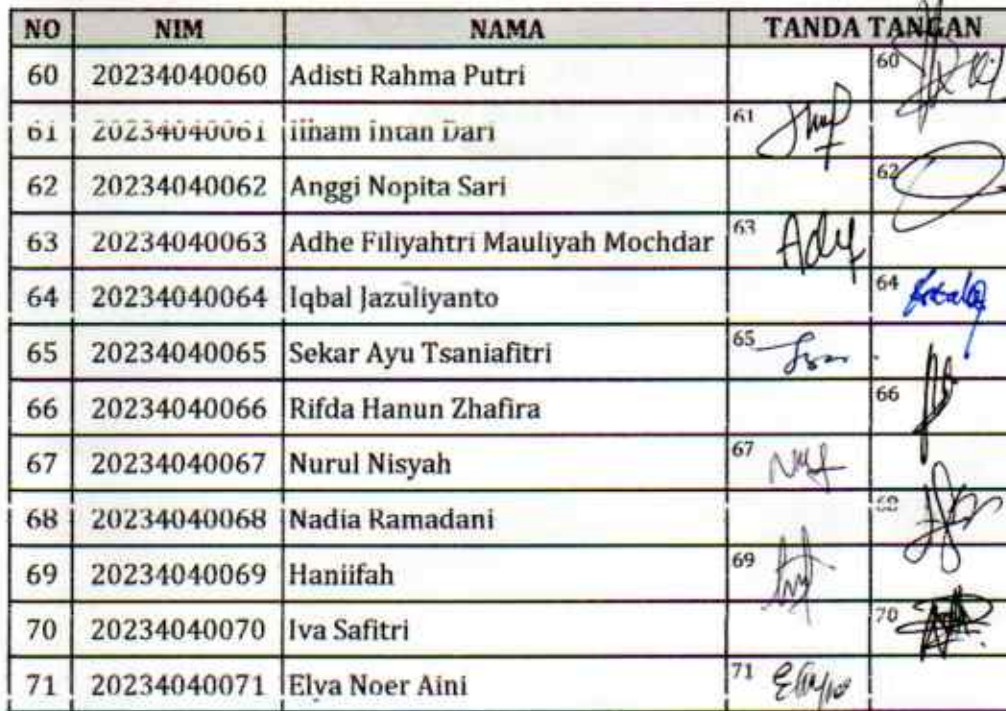 NO NIM NAMA TANDA TANGAN
60 20234040060 Adisti Rahma Putri 60
61 20234040061 Ilham Intan Dari 61
62 20234040062 Anggi Nopita Sari 62
63 20234040063 Adhe Filiyahtri Mauliyah Mochdar 63
64 20234040064 Iqbal Jazuliyanto 64
65 20234040065 Sekar Ayu Tsaniafitri 65
66 20234040066 Rifda Hanun Zhafira 66
67 20234040067 Nurul Nisyah 67
68 20234040068 Nadia Ramadani 68
69 20234040069 Haniifah 69
70 20234040070 Iva Safitri 70
71 20234040071 Elva Noer Aini 71